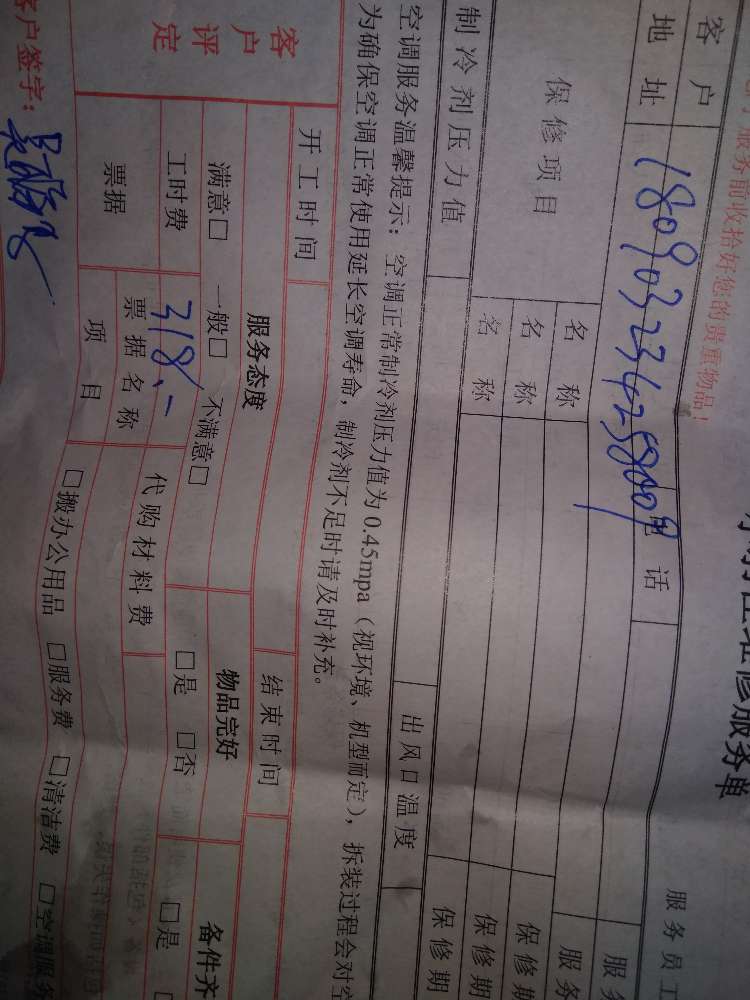 维修服务单
服务前收拾好您的贵重物品！
服务员工
客户 电话
地址 180903234258009
保修项目 名称 保修期
名称 保修期
名称 保修期
制冷剂压力值 出风口温度
空调服务温馨提示：空调正常制冷剂压力值为0.45mpa（视环境、机型而定），拆装过程会对空
为确保空调正常使用延长空调寿命，制冷剂不足时请及时补充。
客户评定 开工时间 结束时间
服务态度 物品完好 备件齐
满意□ 一般□ 不满意□ □是 □否 □是
工时费 318.- 代购材料费
票据 票据名称
项目 □搬办公用品 □服务费 □清洁费 □空调服务
客户签字：